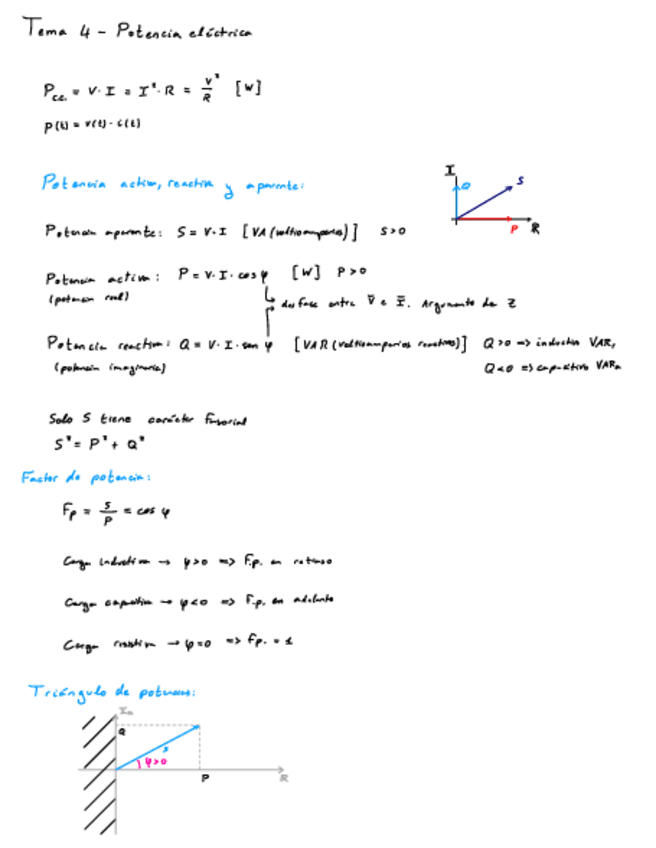 Tema 4 - Potencia eléctrica
Pcc. = V · I = I² · R = V²/R [W]
p(t) = v(t) · i(t)
Potencia activa, reactiva y aparente:
I
Q
S
P
R
Potencia aparente: S = V · I [VA (voltioamperios)] S>0
Potencia activa: P = V · I · cos φ [W] P>0
(potencia real)
desfase entre V̅ e I̅. Argumento de Z
Potencia reactiva: Q = V · I · sen φ [VAR (voltioamperios reactivos)] Q>0 => inductiva VAR
(potencia imaginaria)
Q<0 => capacitivo VAR
Solo S tiene carácter fasorial
S² = P² + Q²
Factor de potencia:
Fp = S/P = cos φ
Carga inductiva → φ>0 => F.p. en retraso
Carga capacitiva → φ<0 => F.p. en adelanto
Carga resistiva → φ=0 => Fp. = 1
Triángulo de potencias:
Im
Q
S
φ>0
P
R